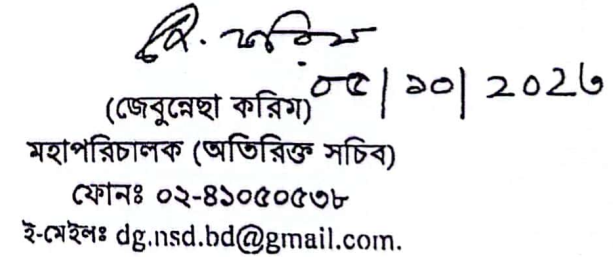 ০৫/১০/২০২৩
(জেবুন্নেছা করিম)
মহাপরিচালক (অতিরিক্ত সচিব)
ফোনঃ ০২-৪১০৫০৫৩৮
ই-মেইলঃ dg.nsd.bd@gmail.com.